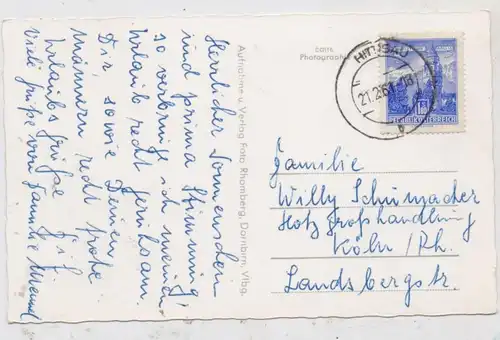 Herrlicher Sonnenschein
und prima Stimmung,
so verbringe ich meinen
Urlaub recht geruhsam.
Dir, sowie Deinen
Mannern recht frohe
Urlaubsgrüße
viele Grüße Familie
Aufnahme u. Verlag Foto Rhomberg, Dornbirn, Vlbg.
Photographie
HITTISAU
21.2.61-18
REPUBLIK ÖSTERREICH
Familie
Willy Schumacher
Holzgroßhandlung
Köln /Rh.
Landsbergstr.